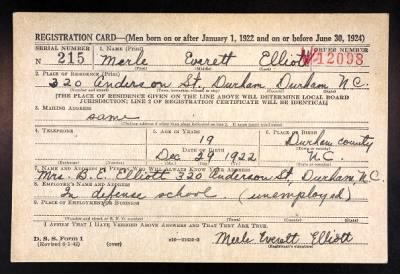 REGISTRATION CARD—(Men born on or after January 1, 1922 and on or before June 30, 1924)
SERIAL NUMBER 1. NAME (Print) ORDER NUMBER
N 215 Merle Everett Elliott 12098
(First) (Middle) (Last)
2. PLACE OF RESIDENCE (Print)
320 Anderson St. Durham, Durham N.C.
[THE PLACE OF RESIDENCE GIVEN ON THE LINE ABOVE WILL DETERMINE LOCAL BOARD
JURISDICTION; LINE 2 OF REGISTRATION CERTIFICATE WILL BE IDENTICAL]
3. MAILING ADDRESS
same
4. TELEPHONE 5. AGE IN YEARS 6. PLACE OF BIRTH
19 Durham county
DATE OF BIRTH
Dec. 29 1922 N.C.
(Exchange) (Number) (Mo.) (Day) (Yr.)
7. NAME AND ADDRESS OF PERSON WHO WILL ALWAYS KNOW YOUR ADDRESS
Mrs. B.C. Elliott 320 Anderson St. Durham, N.C.
8. EMPLOYER'S NAME AND ADDRESS
In defense school. (unemployed)
9. PLACE OF EMPLOYMENT OR BUSINESS
I AFFIRM THAT I HAVE VERIFIED ABOVE ANSWERS AND THAT THEY ARE TRUE.
D. S. S. Form 1
(Revised 6-1-42) (over) Merle Everett Elliott